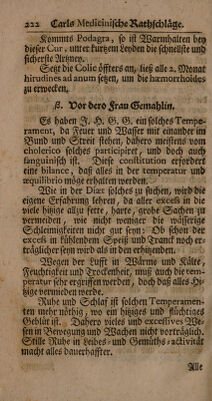 222 Carls Medicinische Rathschläge.
Kommts Podagra, so ist Warmhalten bey
dieser Cur, unter kurtzen Leyden die schnellste und
sicherste Artzney.
Setzt die Colic öffters an, ließ alle 2. Monat
hirudines ad anum setzen, um die hæmorrhoides
zu erwecken.
β. Vor dero Frau Gemahlin.
Es haben J. H. G. G. ein solches Tempe-
rament, da Feuer und Wasser mit einander im
Bund und Streit stehen, dahero meistens vom
cholerico solches participiret, und doch auch
sanguinisch ist. Diese constitution erfordert
eine bilance, daß alles in der temperatur und
æquilibrio möge erhalten werden.
Wie in der Diæt solches zu suchen, wird die
eigene Erfahrung lehren, da aller excess in die
viele hitzige allzu fette, harte, grobe Sachen zu
vermeiden, wie nicht weniger die wässerige
Schleimigkeiten nicht gut seyn: Ob schon der
excess in kühlendem Speiß und Tranck noch er-
träglicher seyn wird als in den erhitzenden.
Wegen der Lufft in Wärme und Kälte,
Feuchtigkeit und Trockenheit, muß auch die tem-
peratur ergriffen werden, doch daß alles Hi-
tzige vermieden werde.
Ruhe und Schlaf ist solchen Temperamen-
ten mehr nöthig, wo ein hitziges und flüchtiges
Geblüt ist. Dahero vieles und excessives We-
sen in Bewegung und Wachen nicht vorträglich.
Stille Ruhe in Leibes- und Gemüths-activität
macht alles dauerhaffter.
Alle